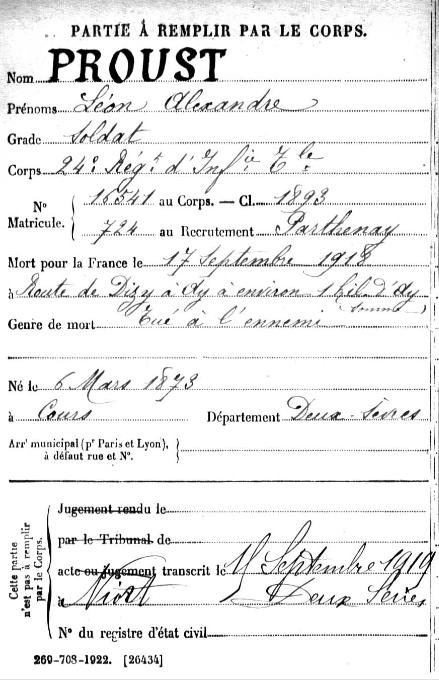 PARTIE À REMPLIR PAR LE CORPS.
Nom PROUST
Prénoms Léon Alexandre
Grade Soldat
Corps 24e Régt d'Infie Tle
Nº Matricule. { 16541 au Corps. — Cl. 1893
724 au Recrutement Parthenay
Mort pour la France le 17 Septembre 1918
à Route de Dizy à Ay à environ 1 kil. d'Ay
(Somme)
Genre de mort Tué à l'ennemi
Né le 6 Mars 1873
à Cours Département Deux-Sèvres
Arrt municipal (pr Paris et Lyon), à défaut rue et Nº.
Cette partie n'est pas à remplir par le Corps.
Jugement rendu le
par le Tribunal de
acte ou jugement transcrit le Septembre 1919
à Niort Deux Sèvres
Nº du registre d'état civil
269-708-1922. [26434]